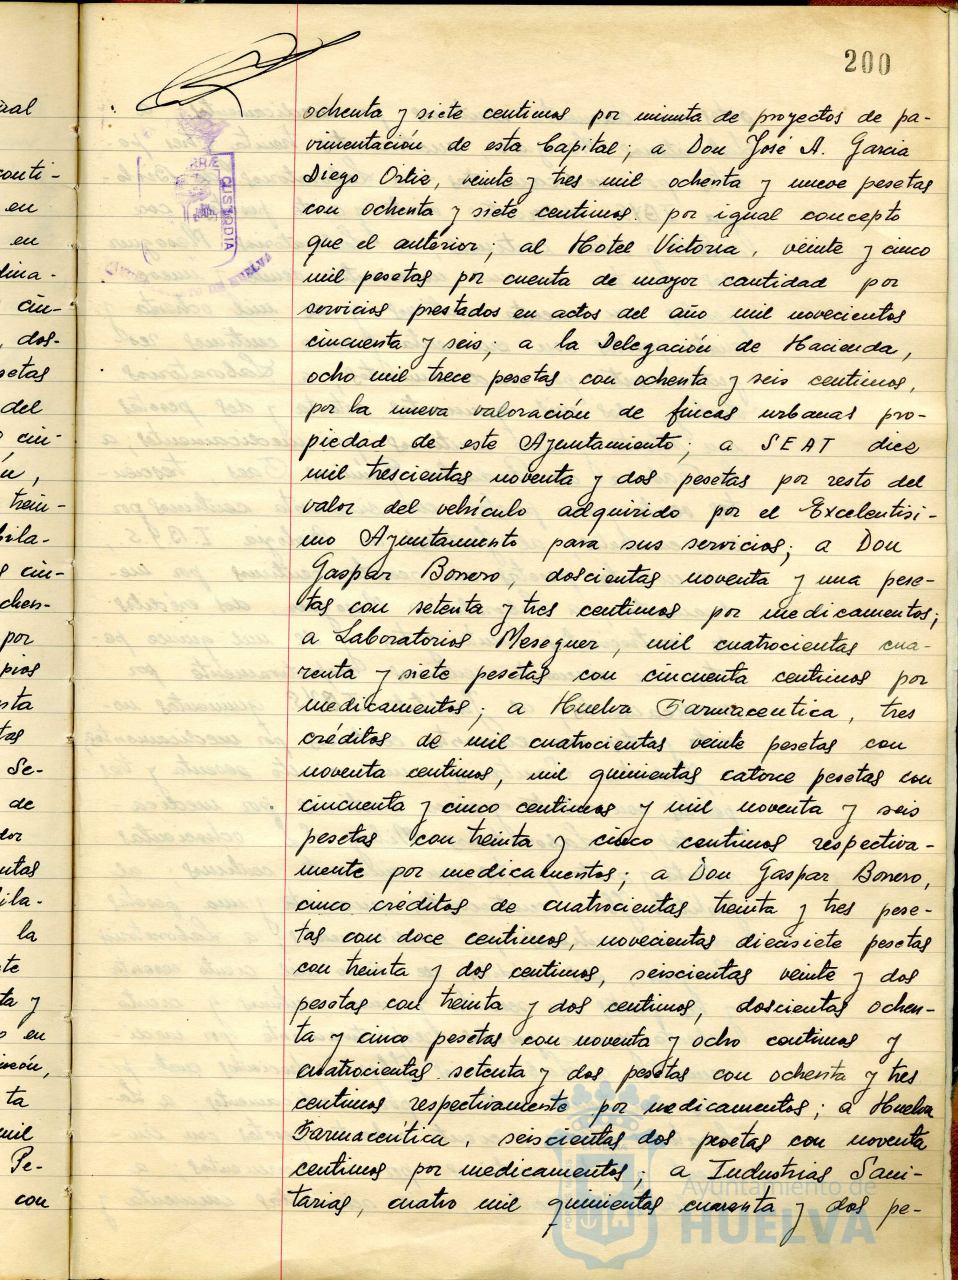 200
ochenta y siete centimos por minuta de proyectos de pa-
vimentación de esta Capital; a Don José A. Garcia
Diego Ortiz, veinte y tres mil ochenta y nueve pesetas
con ochenta y siete centimos. por igual concepto
que el anterior; al Hotel Victoria, veinte y cinco
mil pesetas por cuenta de mayor cantidad por
servicios prestados en actos del año mil novecientos
cincuenta y seis; a la Delegación de Hacienda,
ocho mil trece pesetas con ochenta y seis centimos,
por la nueva valoración de fincas urbanas pro-
piedad de este Ayuntamiento; a SEAT diez
mil trescientas noventa y dos pesetas por resto del
valor del vehículo adquirido por el Excelentisi-
mo Ayuntamiento para sus servicios; a Don
Gaspar Borrero, doscientas noventa y una pese-
tas con setenta y tres centimos por medicamentos;
a Laboratorios Meseguer, mil cuatrocientas cua-
renta y siete pesetas con cincuenta centimos por
medicamentos; a Huelva Farmaceutica, tres
créditos de mil cuatrocientas veinte pesetas con
noventa centimos, mil quinientas catorce pesetas con
cincuenta y cinco centimos y mil noventa y seis
pesetas con treinta y cinco centimos respectiva-
mente por medicamentos; a Don Gaspar Borrero,
cinco créditos de cuatrocientas treinta y tres pese-
tas con doce centimos, novecientas diecisiete pesetas
con treinta y dos centimos, seiscientas veinte y dos
pesetas con treinta y dos centimos, doscientas ochen-
ta y cinco pesetas con noventa y ocho centimos y
cuatrocientas setenta y dos pesetas con ochenta y tres
centimos respectivamente por medicamentos; a Huelva
Farmaceútica, seiscientas dos pesetas con noventa
centimos por medicamentos; a Industrias Sani-
tarias, cuatro mil quinientas cuarenta y dos pe-
CUSTODIA
HUELVA
Ayuntamiento de
HUELVA